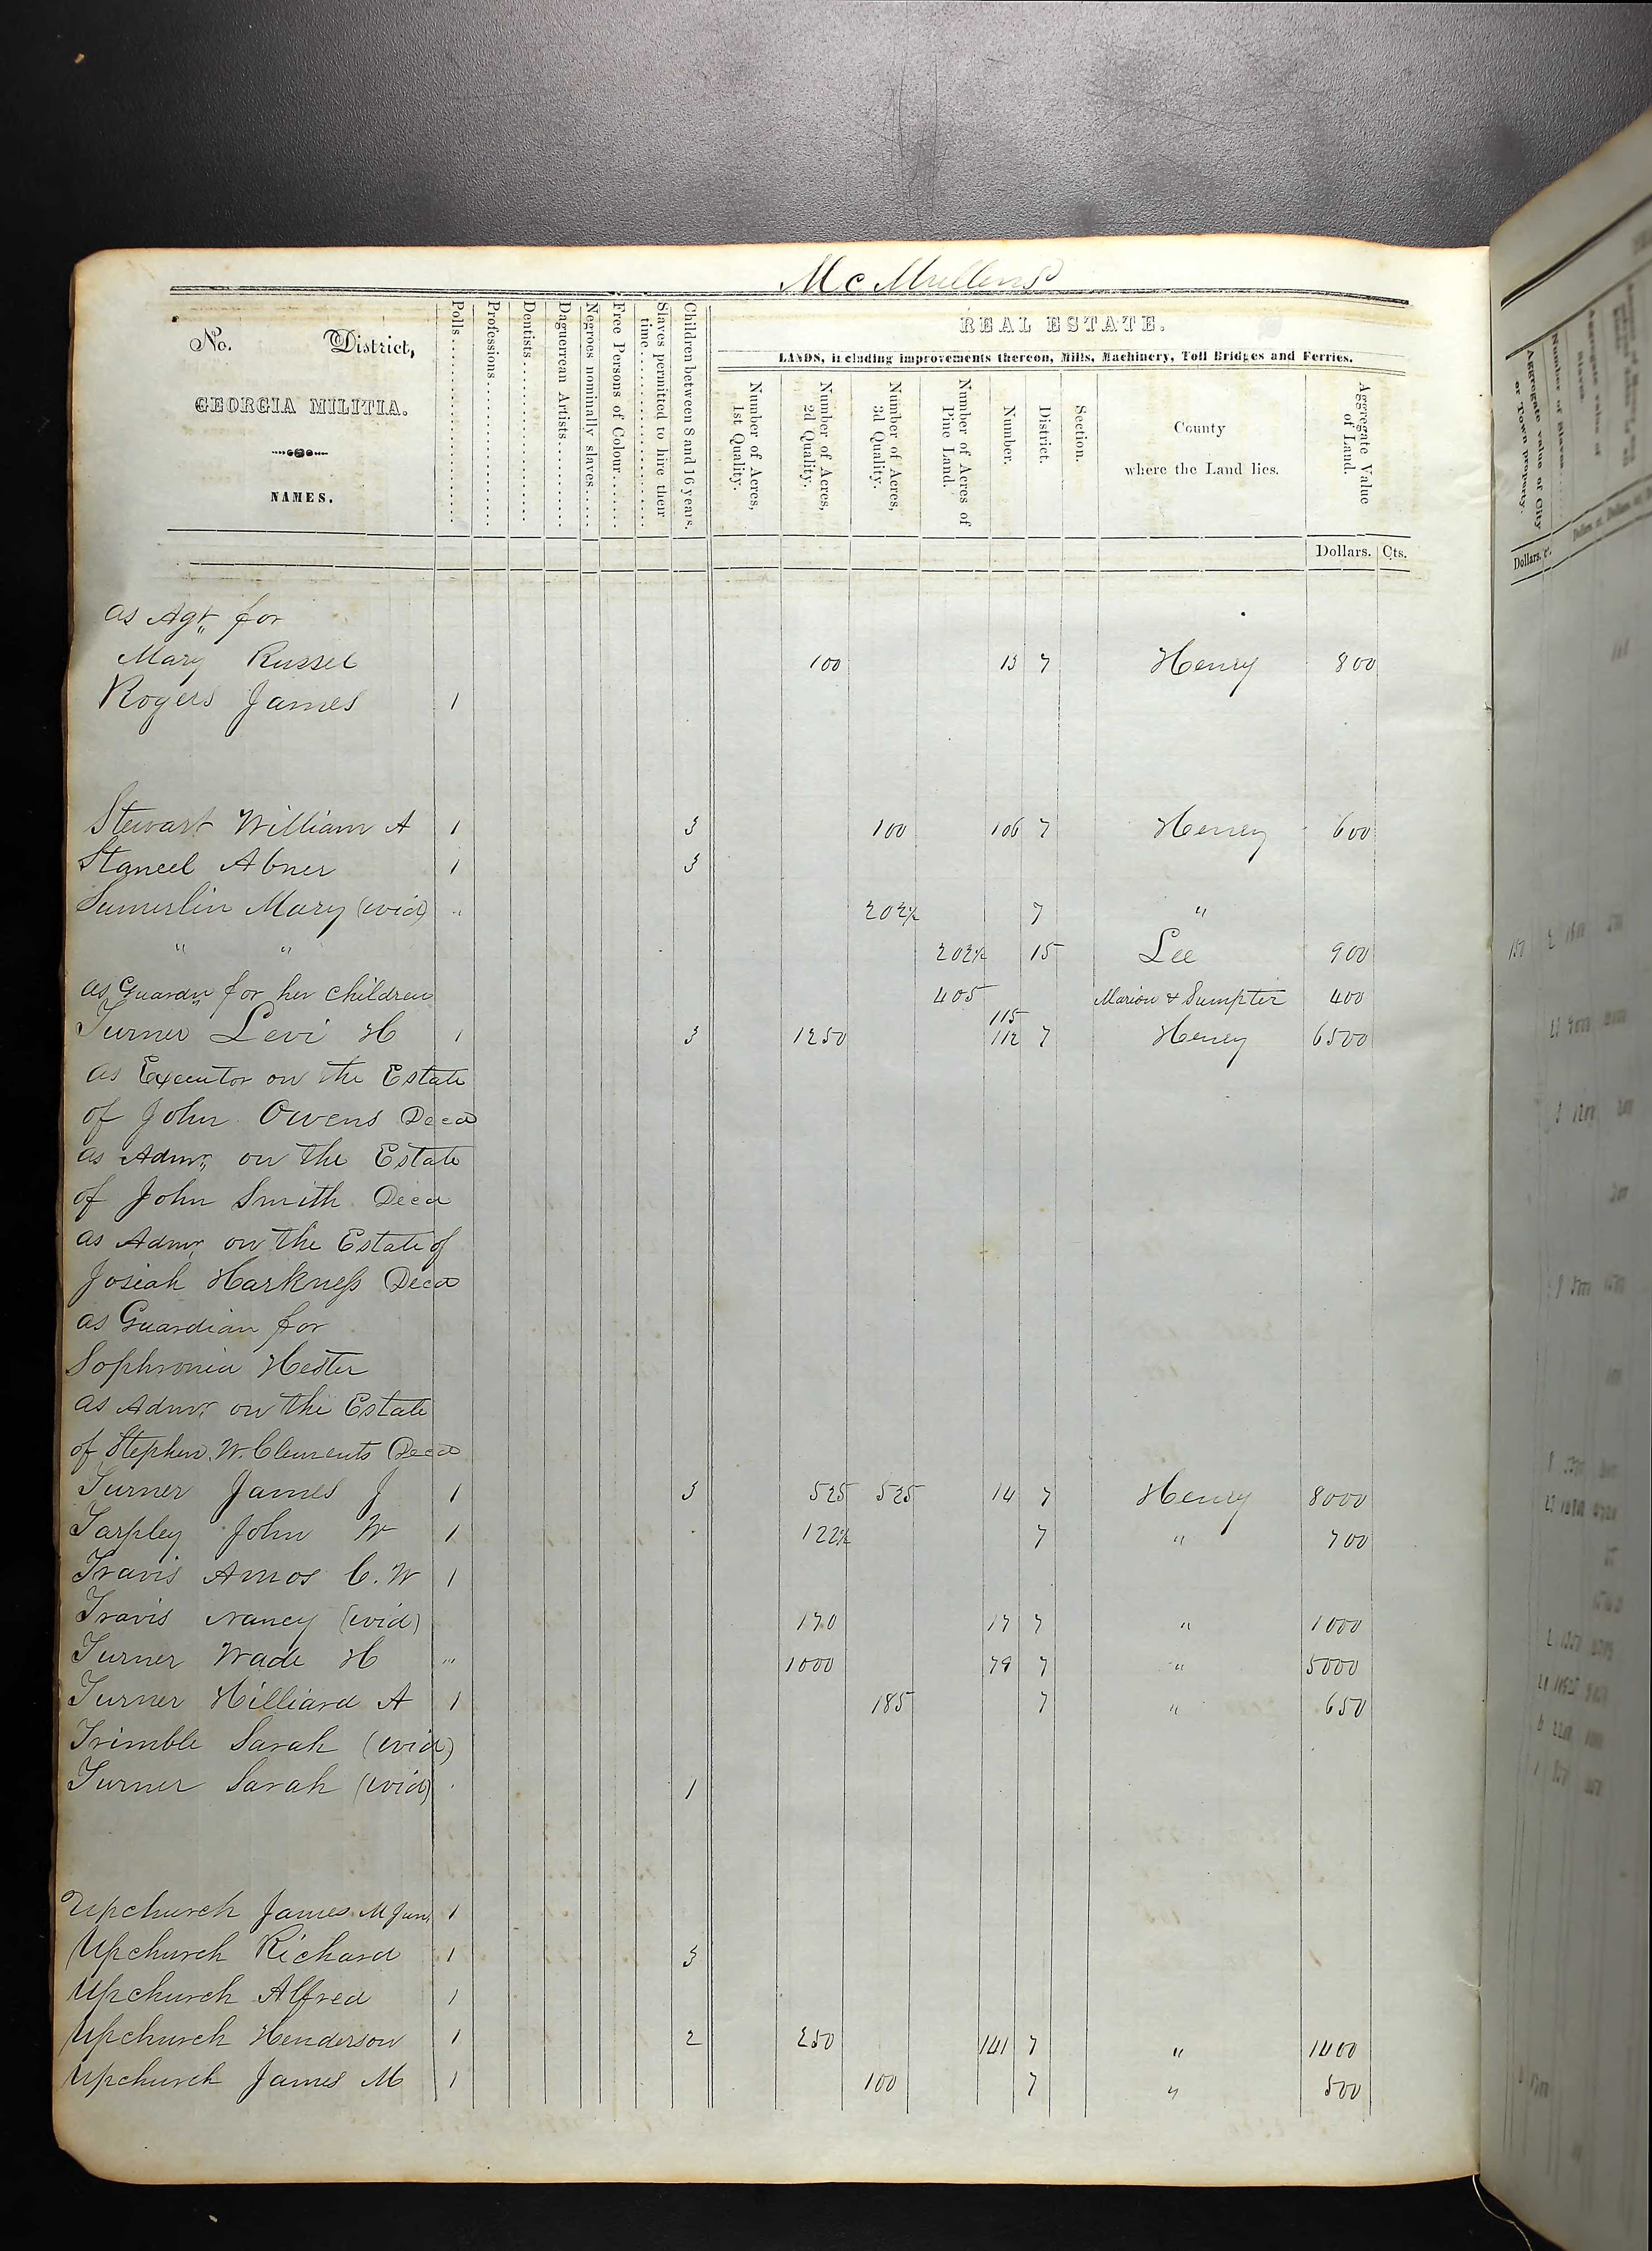 McMullens
No. District,
GEORGIA MILITIA.
NAMES.
Polls
Professions
Dentists
Daguerrean Artists
Negroes nominally slaves
Free Persons of Colour
Slaves permitted to hire their time
Children between 8 and 16 years.
REAL ESTATE.
LANDS, including improvements thereon, Mills, Machinery, Toll Bridges and Ferries.
Number of Acres, 1st Quality.
Number of Acres, 2d Quality.
Number of Acres, 3d Quality.
Number of Acres of Pine Land.
Number.
District.
Section.
County where the Land lies.
Aggregate Value of Land.
Dollars. Cts.
as Agt for
Mary Russel 100 13 7 Henry 800
Rogers James 1
Stewart William A 1 3 100 106 7 Henry 600
Stancel Abner 1 3
Sumerlin Mary (wid) " 202½ 7 "
" " 202½ 15 Lee 900
as Guardn for her children 405 Marion & Sumpter 400
115
Turner Levi H 1 3 1250 112 7 Henry 6500
as Executor on the Estate
of John Owens Decd
as Admr on the Estate
of John Smith Decd
as Admr on the Estate of
Josiah Harkness Decd
as Guardian for
Sophronia Hester
as Admr on the Estate
of Stephen W. Clements Decd
Turner James J 1 3 525 525 14 7 Henry 8000
Tarpley John W 1 122½ 7 " 700
Travis Amos C. W 1
Travis Nancy (wid) 170 17 7 " 1000
Turner Wade H " 1000 79 7 " 5000
Turner Hilliard A 1 185 7 " 650
Trimble Sarah (wid)
Turner Sarah (wid) 1
Upchurch James M Jun. 1
Upchurch Richard 1 3
Upchurch Alfred 1
Upchurch Henderson 1 2 250 141 7 " 1400
Upchurch James M 1 100 7 " 500
Aggregate value of City or Town property.
Number of Slaves
Dollars.
150